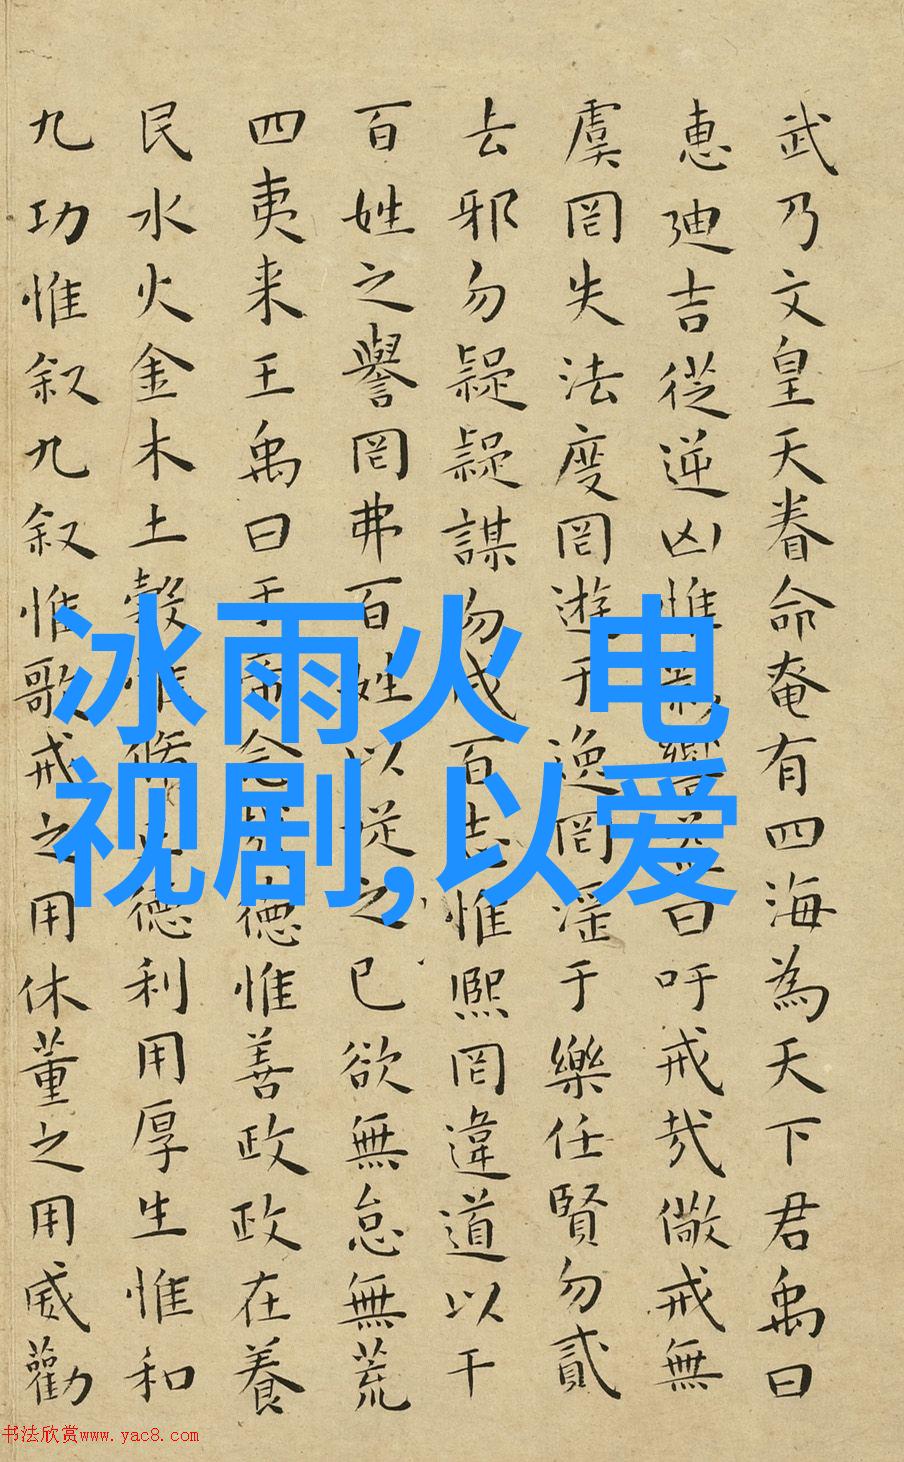 武乃文皇天眷命奄有四海為天下君禹曰
惠廸吉從逆凶惟影響益曰吁戒哉儆戒無
虞罔失法度罔遊于逸罔淫于樂任賢勿貳
去邪勿疑疑謀勿成百志惟熙罔違道以干
百姓之譽罔弗百姓以従之已欲無怠無荒
四夷来王禹曰于帝念哉德惟善政政在養
民水火金木土穀惟脩正德利用厚生惟和
九功惟叙九叙惟歌戒之用休董之用威勸
冰雨火 电
视剧,以爱
书法欣赏www.yac8.com